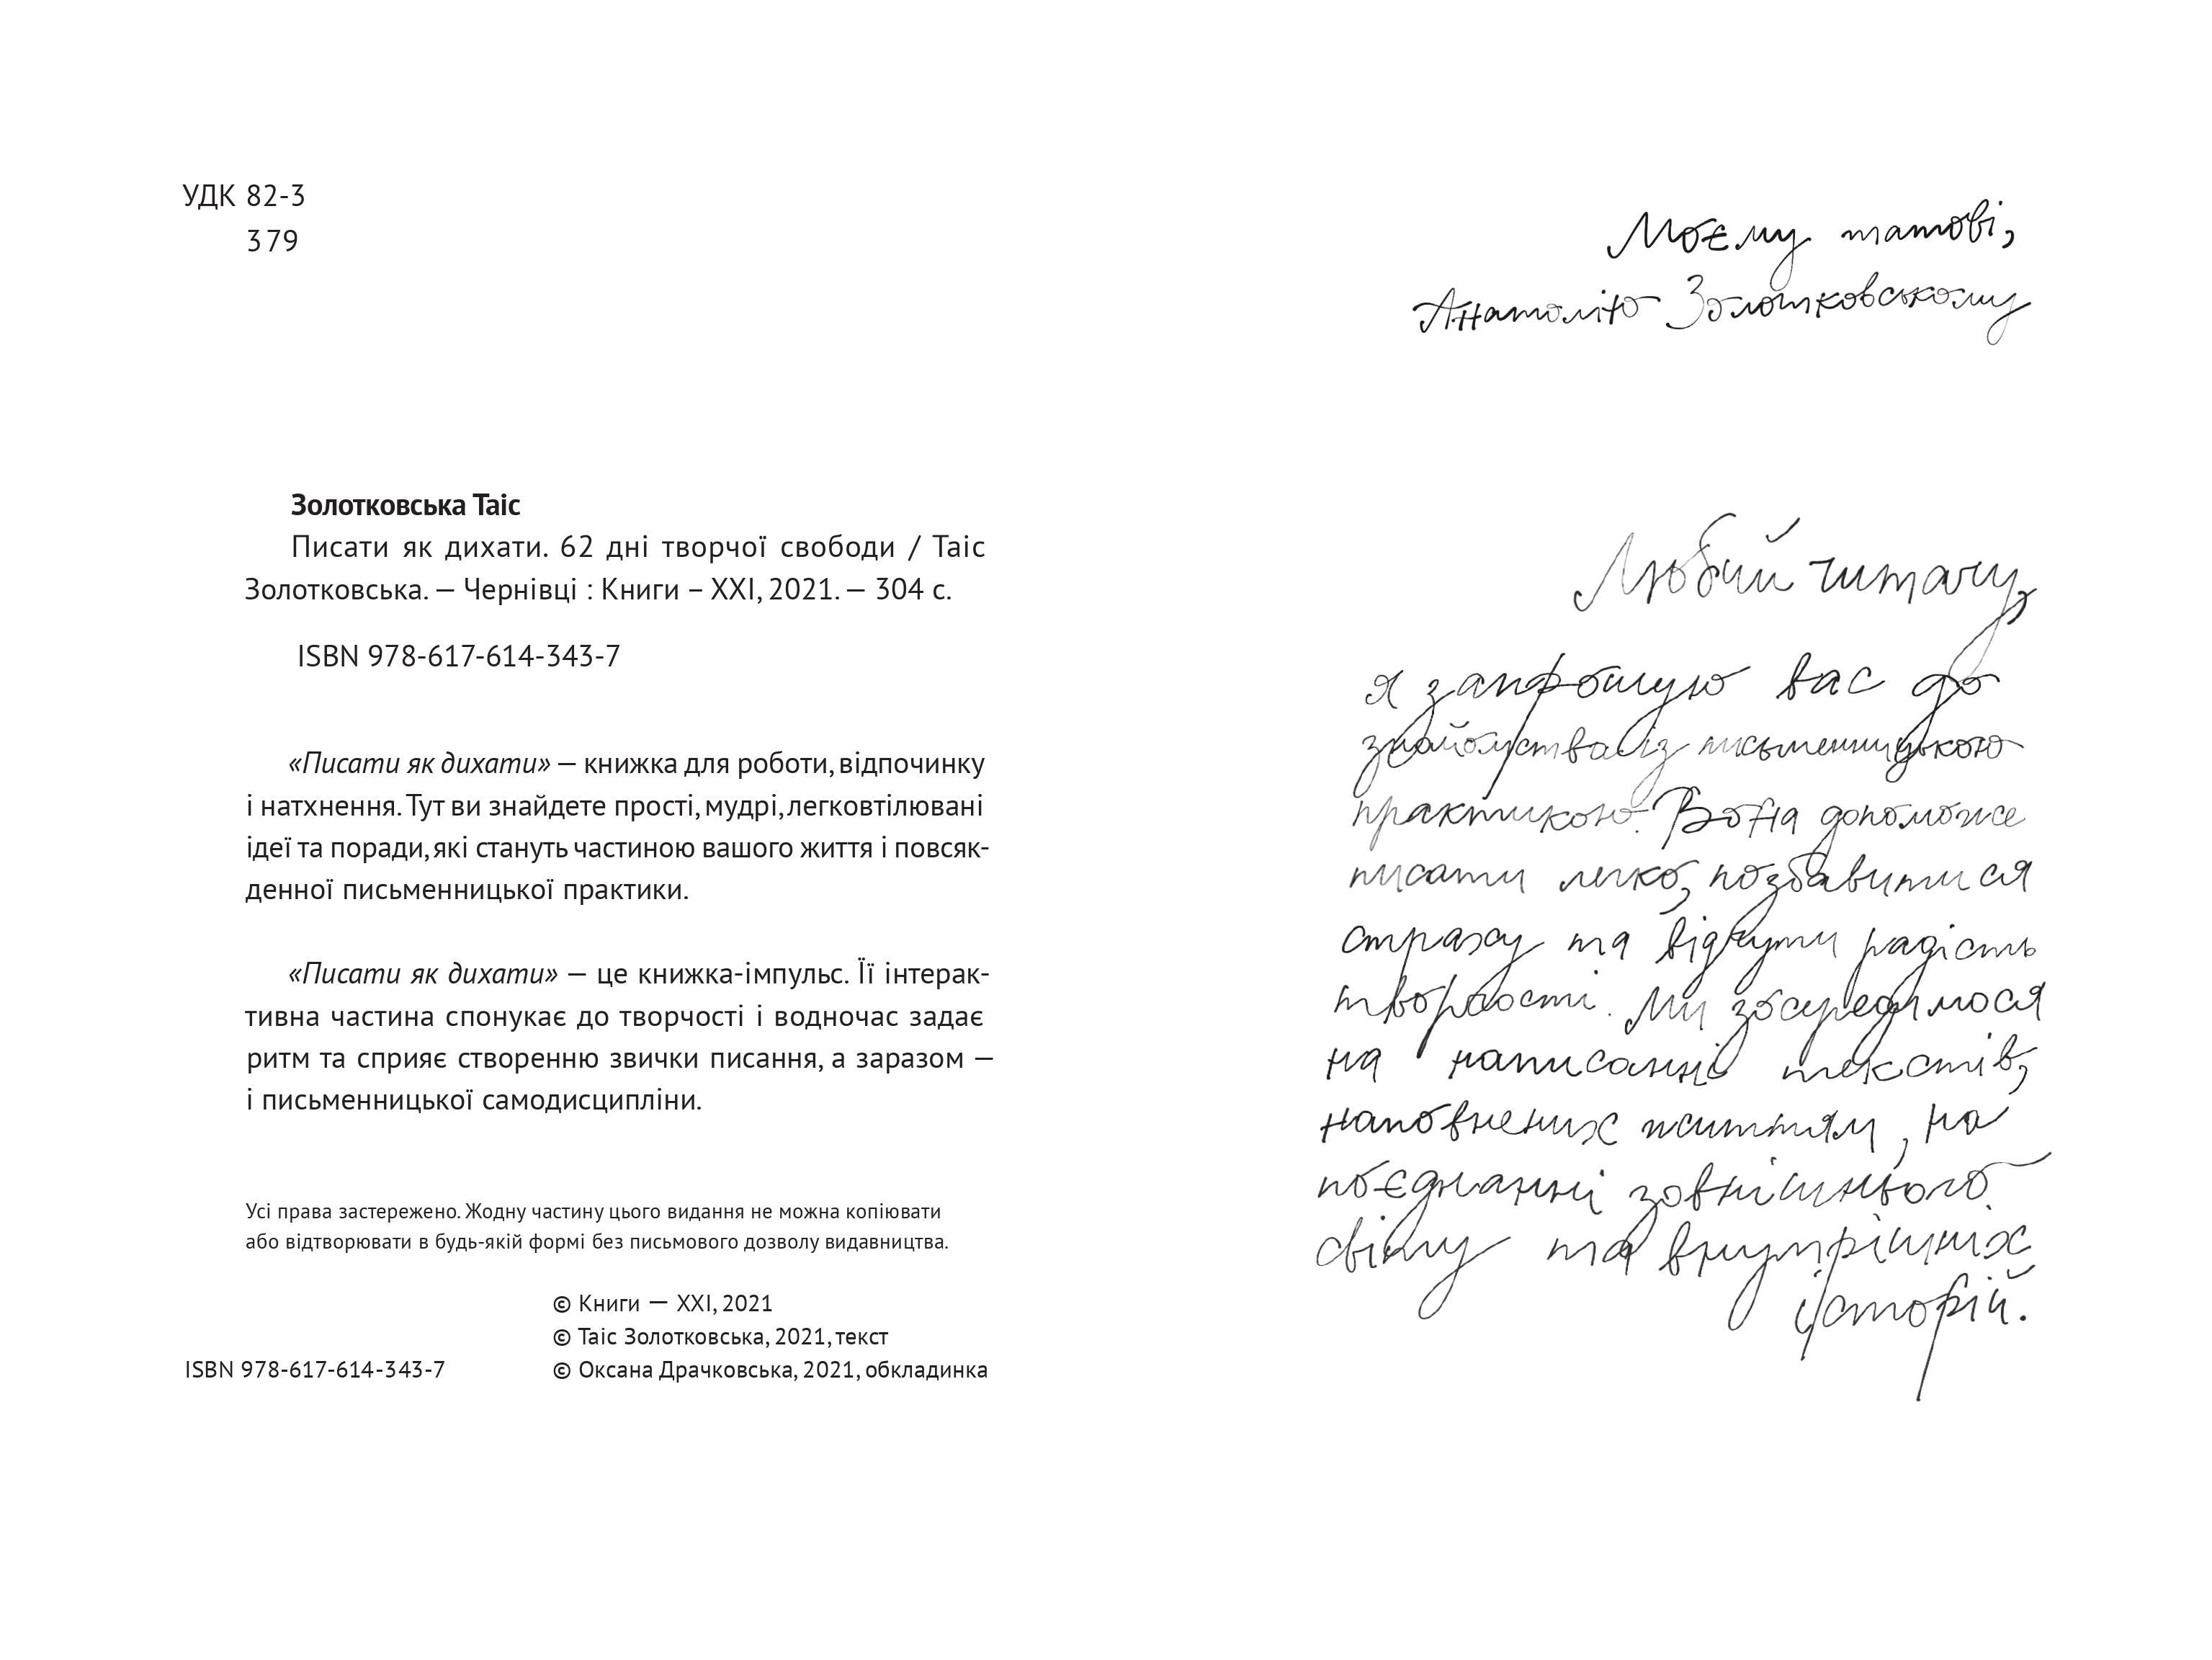 УДК 82-3
379
Золотковська Таіс
Писати як дихати. 62 дні творчої свободи / Таіс
Золотковська. — Чернівці : Книги – XXI, 2021. — 304 с.
ISBN 978-617-614-343-7
«Писати як дихати» — книжка для роботи, відпочинку
і натхнення. Тут ви знайдете прості, мудрі, легковтілювані
ідеї та поради, які стануть частиною вашого життя і повсяк-
денної письменницької практики.
«Писати як дихати» — це книжка-імпульс. Її інтерак-
тивна частина спонукає до творчості і водночас задає
ритм та сприяє створенню звички писання, а заразом —
і письменницької самодисципліни.
Усі права застережено. Жодну частину цього видання не можна копіювати
або відтворювати в будь-якій формі без письмового дозволу видавництва.
© Книги — XXI, 2021
© Таіс Золотковська, 2021, текст
ISBN 978-617-614-343-7 © Оксана Драчковська, 2021, обкладинка
Моєму татові,
Анатолію Золотковському
Любий читачу,
я запрошую вас до
знайомства із письменницькою
практикою. Вона допоможе
писати легко, позбавитися
страху та відчути радість
творчості. Ми зосередимося
на написанні текстів,
наповнених життям, на
поєднанні зовнішнього
світу та внутрішніх
історій.